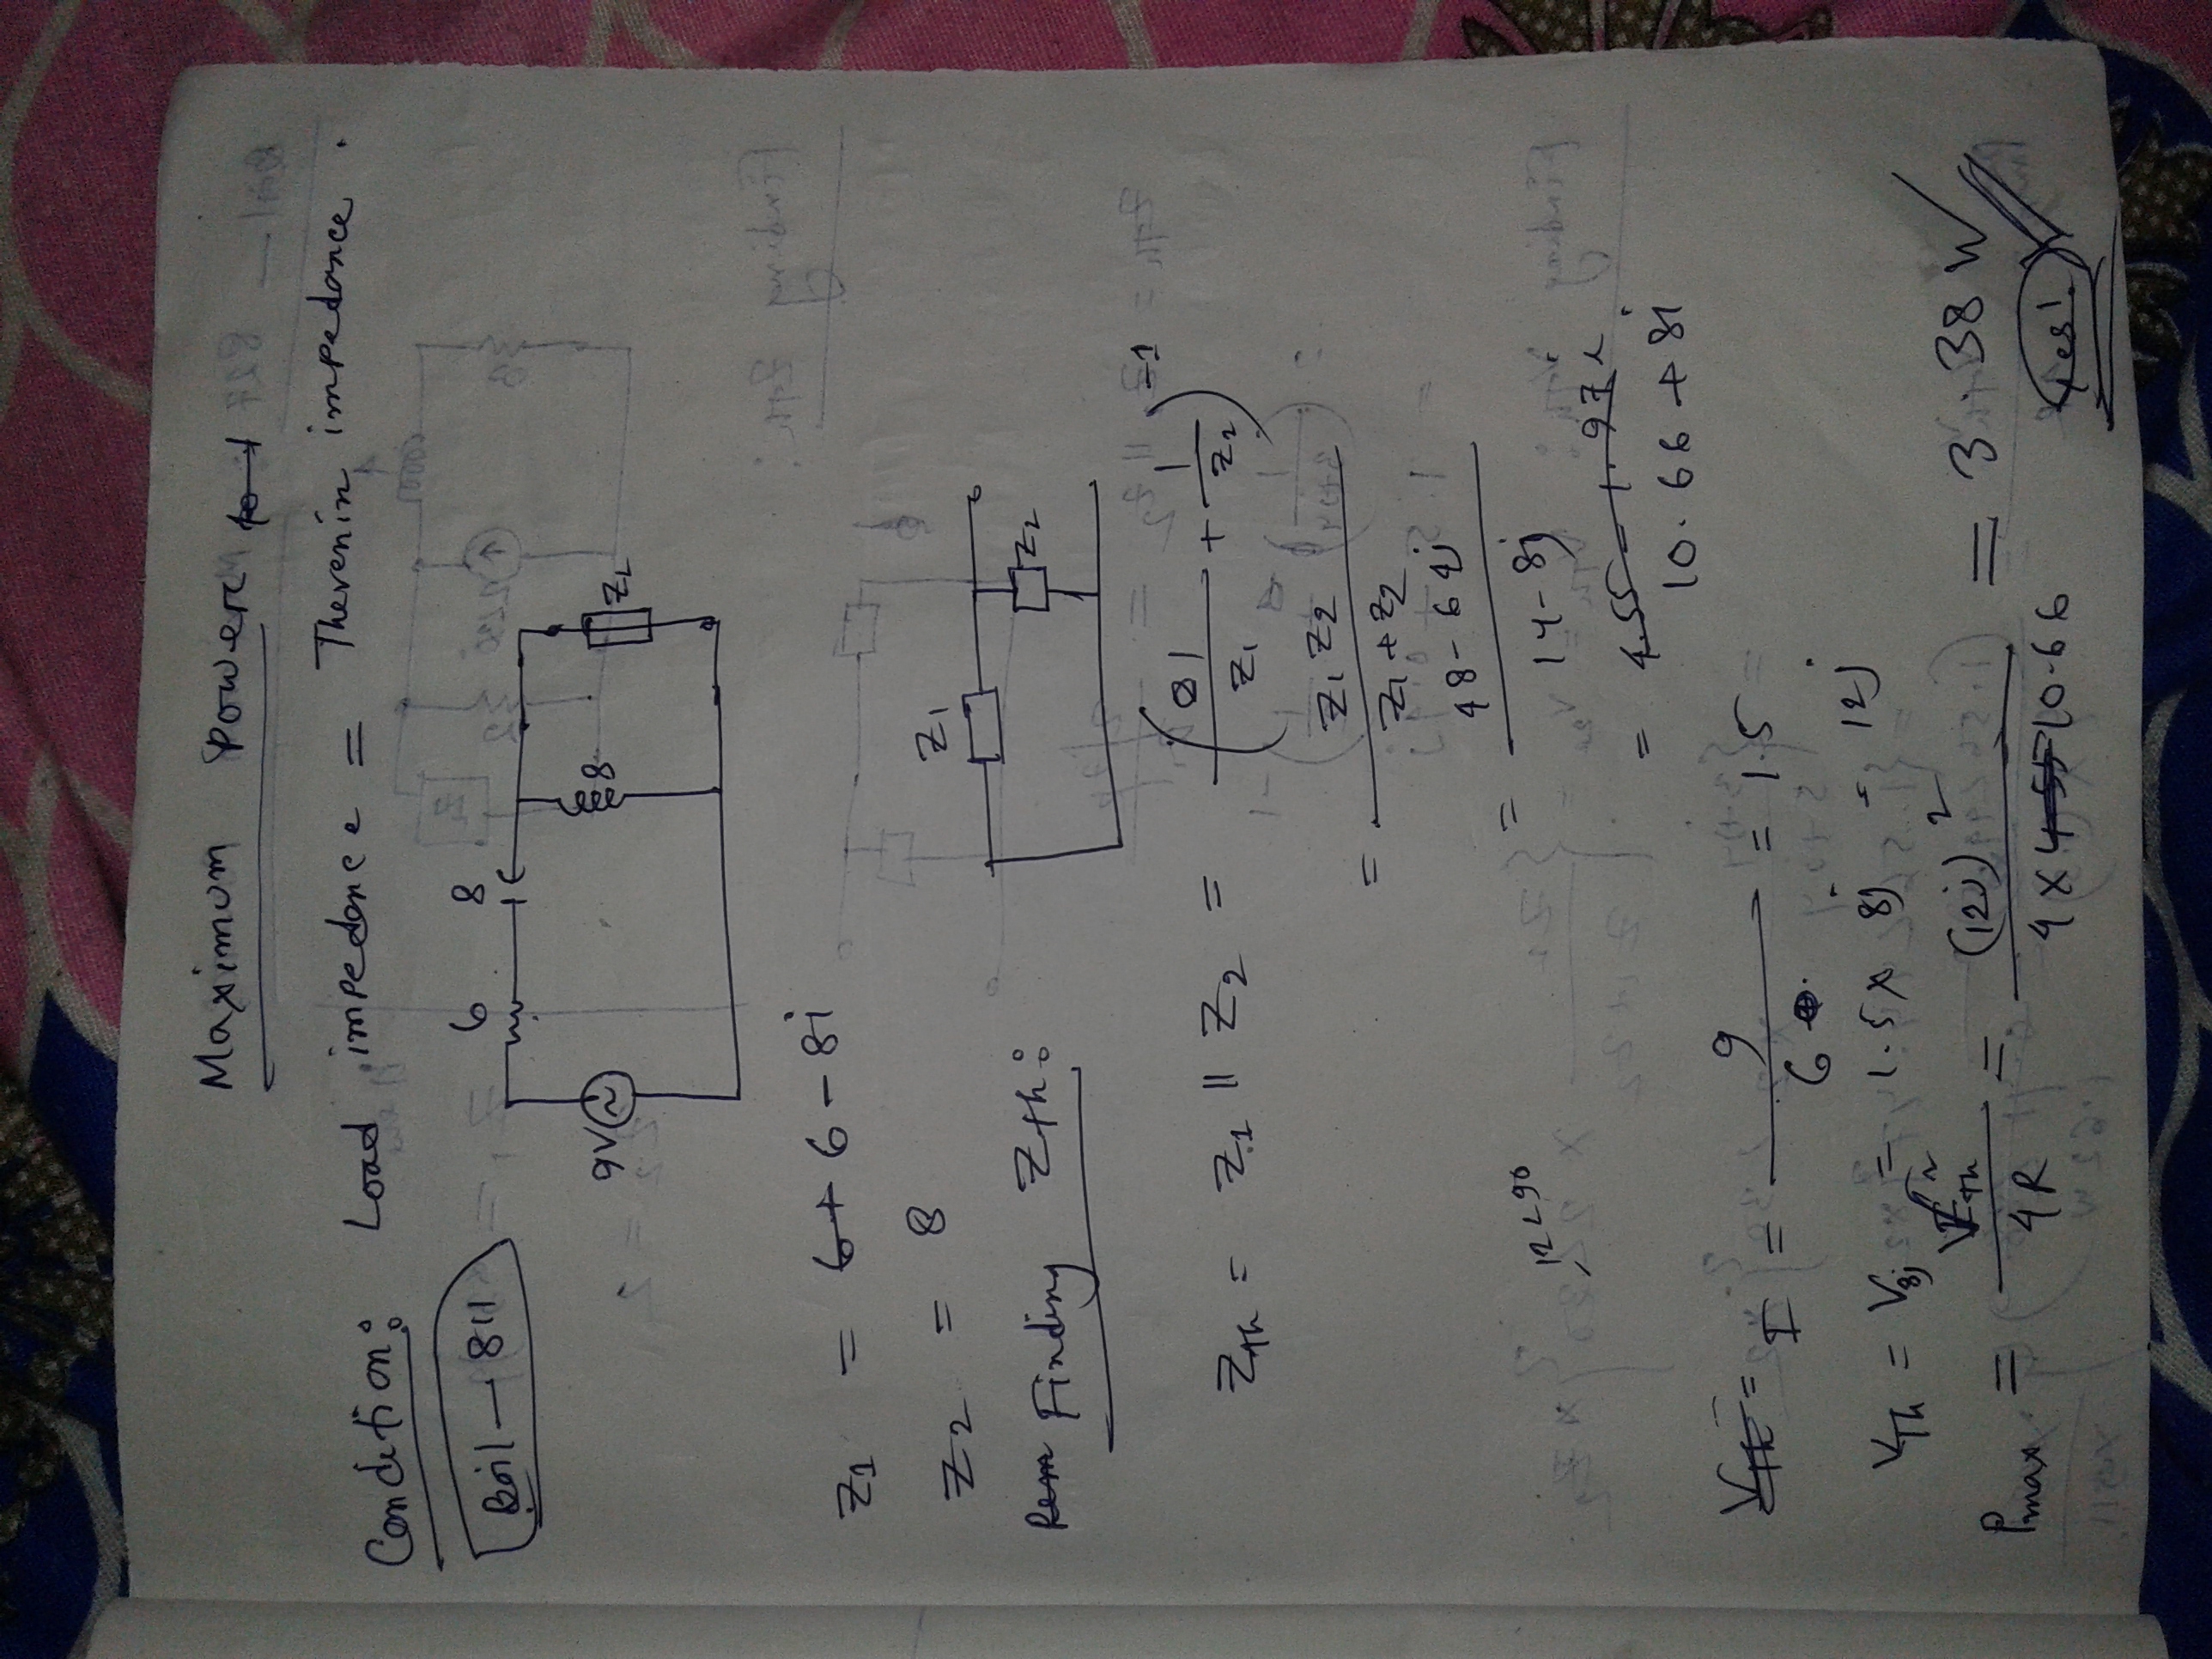 Maximum Powere
Condition: Load impedence = Thevenin impedance.
Boil - 811
6 8
9V 8 ZL
Z1 = 6 - 8i
Z2 = 8
Z1
Z2
Finding Zth:
Zth = Z1 || Z2 = (1/Z1 + 1/Z2)^-1
= Z1 Z2 / Z1 + Z2
= 48 - 64j / 14 - 8j
12∠90
= 10.66 + 8i
I = 9/6 = 1.5
VTh = V8j = 1.5 x 8j = 12j
Pmax = VTh² / 4R = (12j)² / 4 x 10.66 = 3.38 W
Yes!